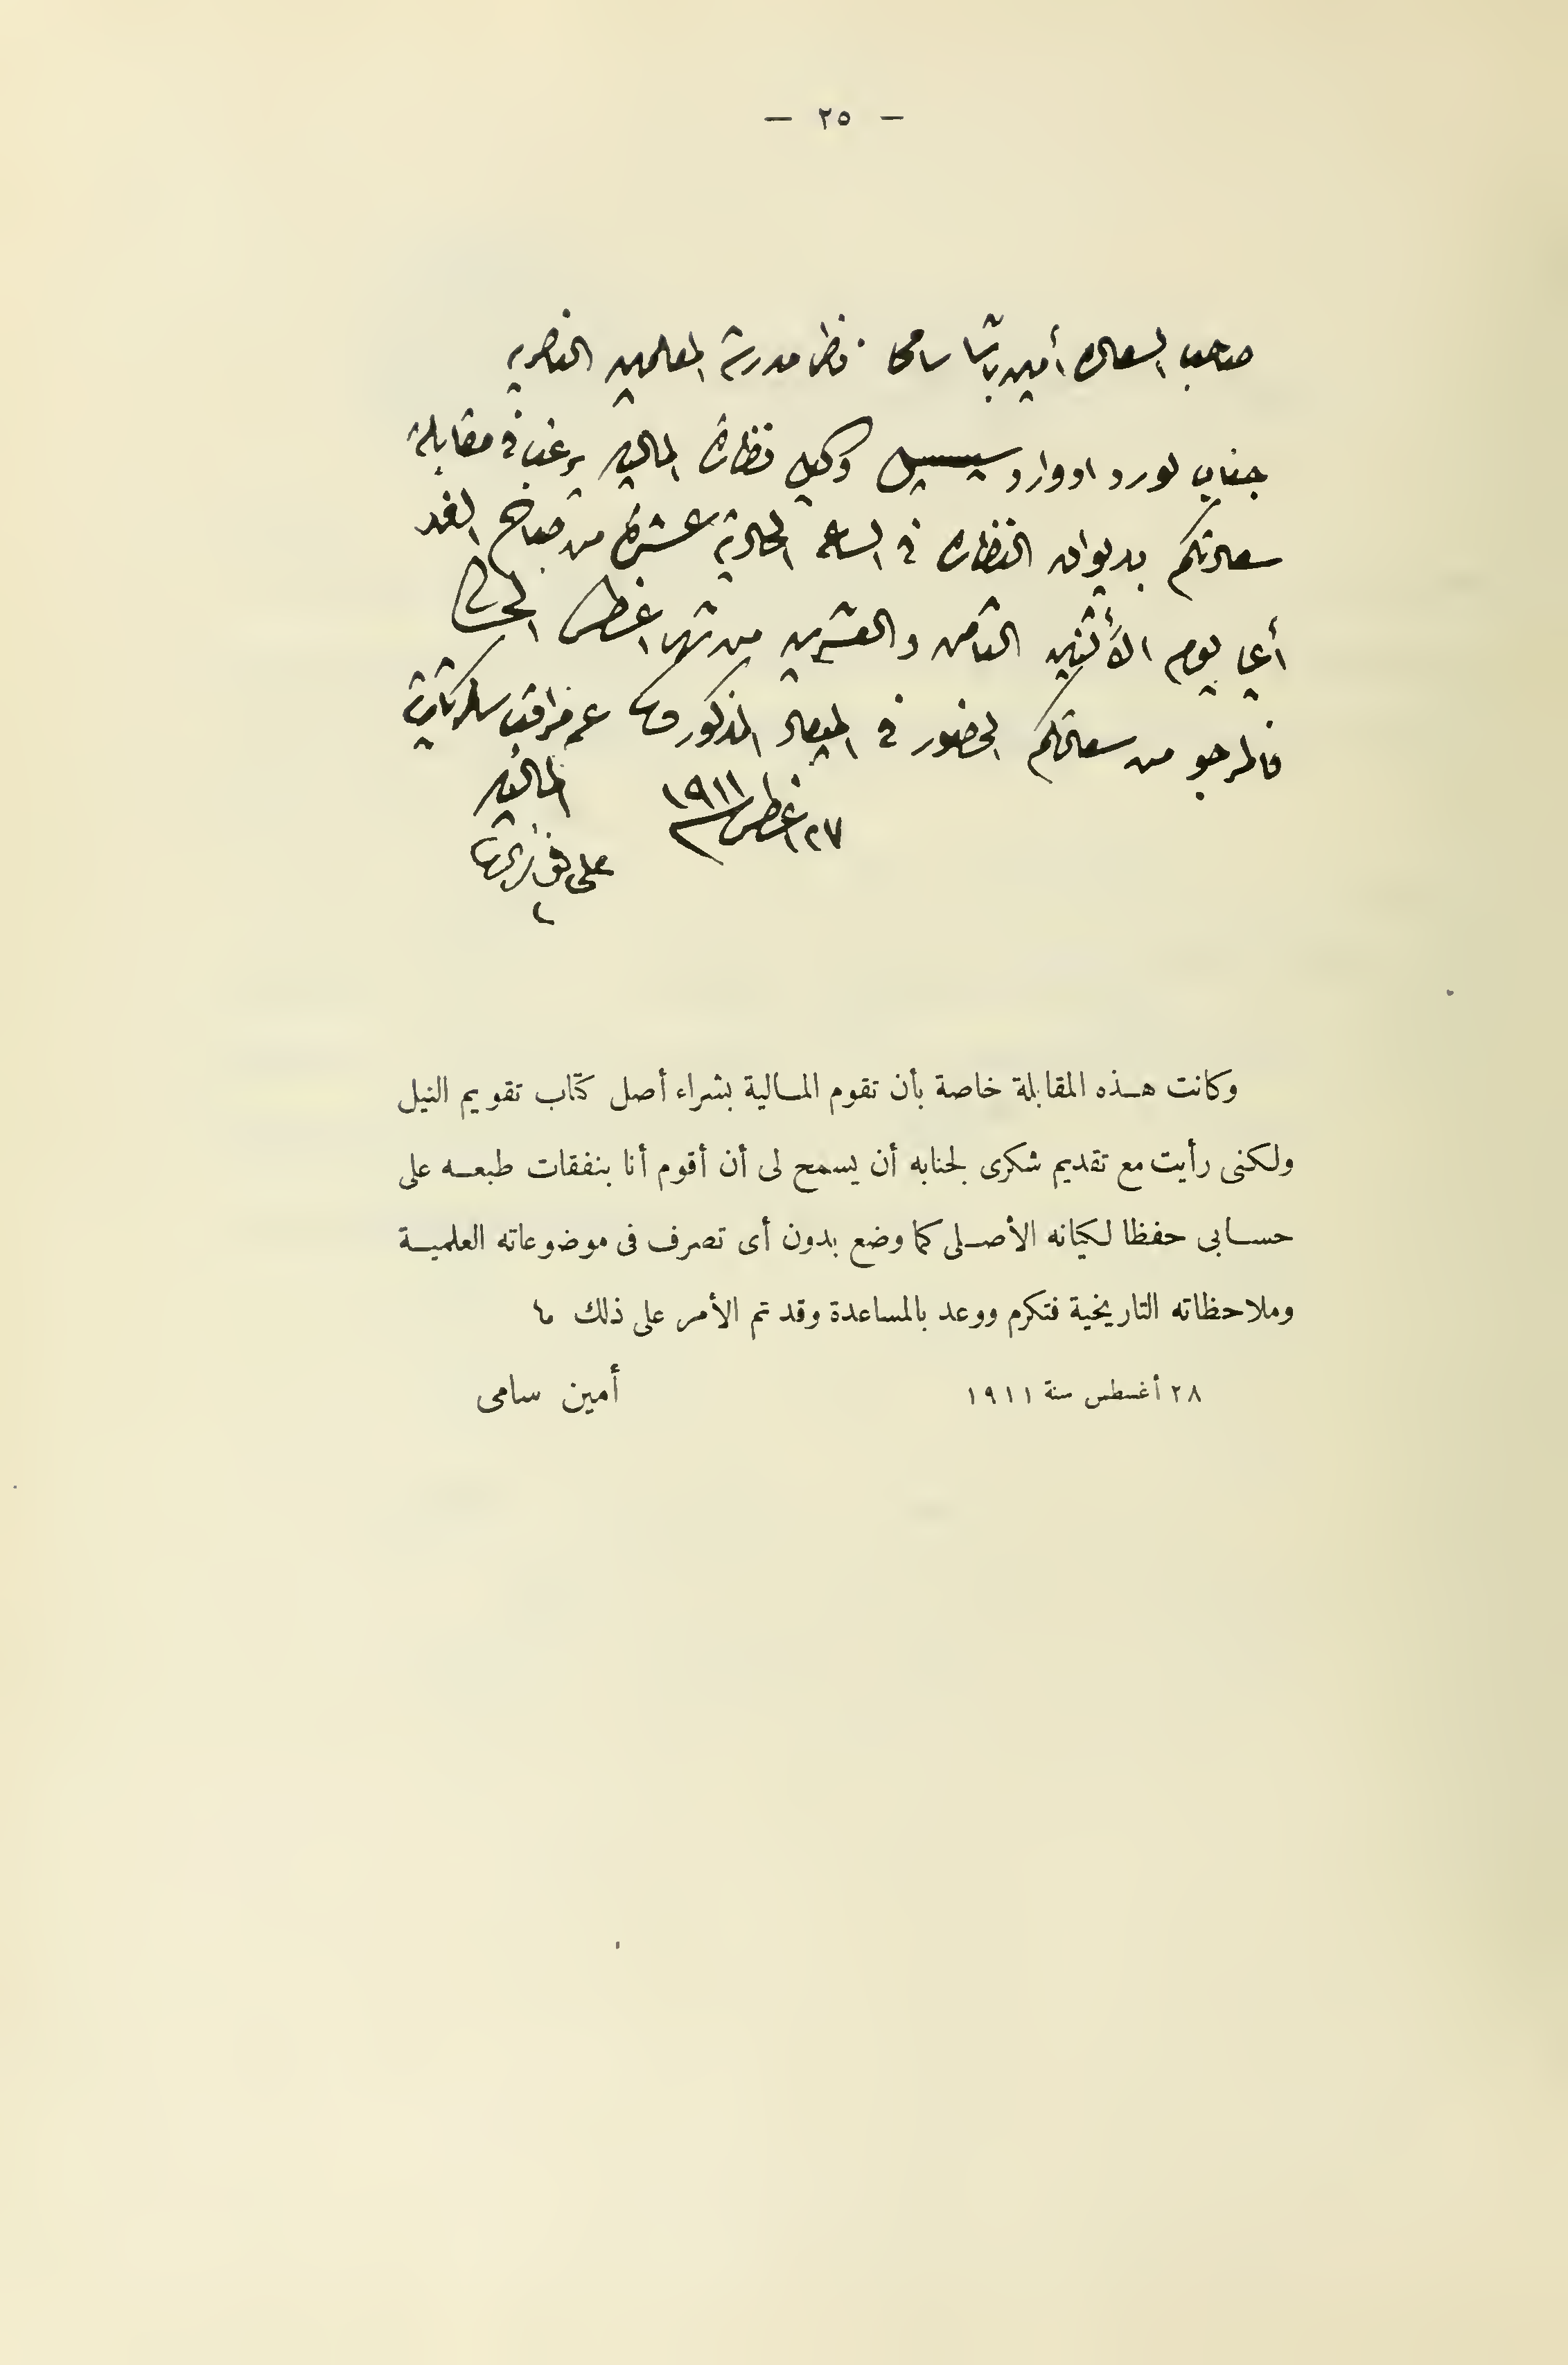 — ٢٥ —
صاحب السعادة أمين باشا سامى ناظر مدرسة المعلمين الناصرية
جناب لورد ادوارد سيسيل وكيل نظارة المالية يرغب فى مقابلة
سعادتكم بديوان النظارة فى الساعة الحادية عشرة من صباح الغد
أى يوم الأثنين الثامن والعشرين من شهر اغسطس الحالى
فالمرجو من سعادتكم الحضور فى الميعاد المذكور عن مراقب سكرتارية
المالية
٢٧ اغسطس ١٩١١
على فوزى
وكانت هـذه المقابلة خاصة بأن تقوم المـالية بشراء أصل كتاب تقويم النيل
ولكنى رأيت مع تقديم شكرى لجنابه أن يسمح لى أن أقوم أنا بنفقات طبعـه على
حسـابى حفظا لكيانه الأصـلى كما وضع بدون أى تصرف فى موضوعاته العلميـة
وملاحظاته التاريخية فتكرم ووعد بالمساعدة وقد تم الأمر على ذلك ما
٢٨ أغسطس سنة ١٩١١ أمين سامى